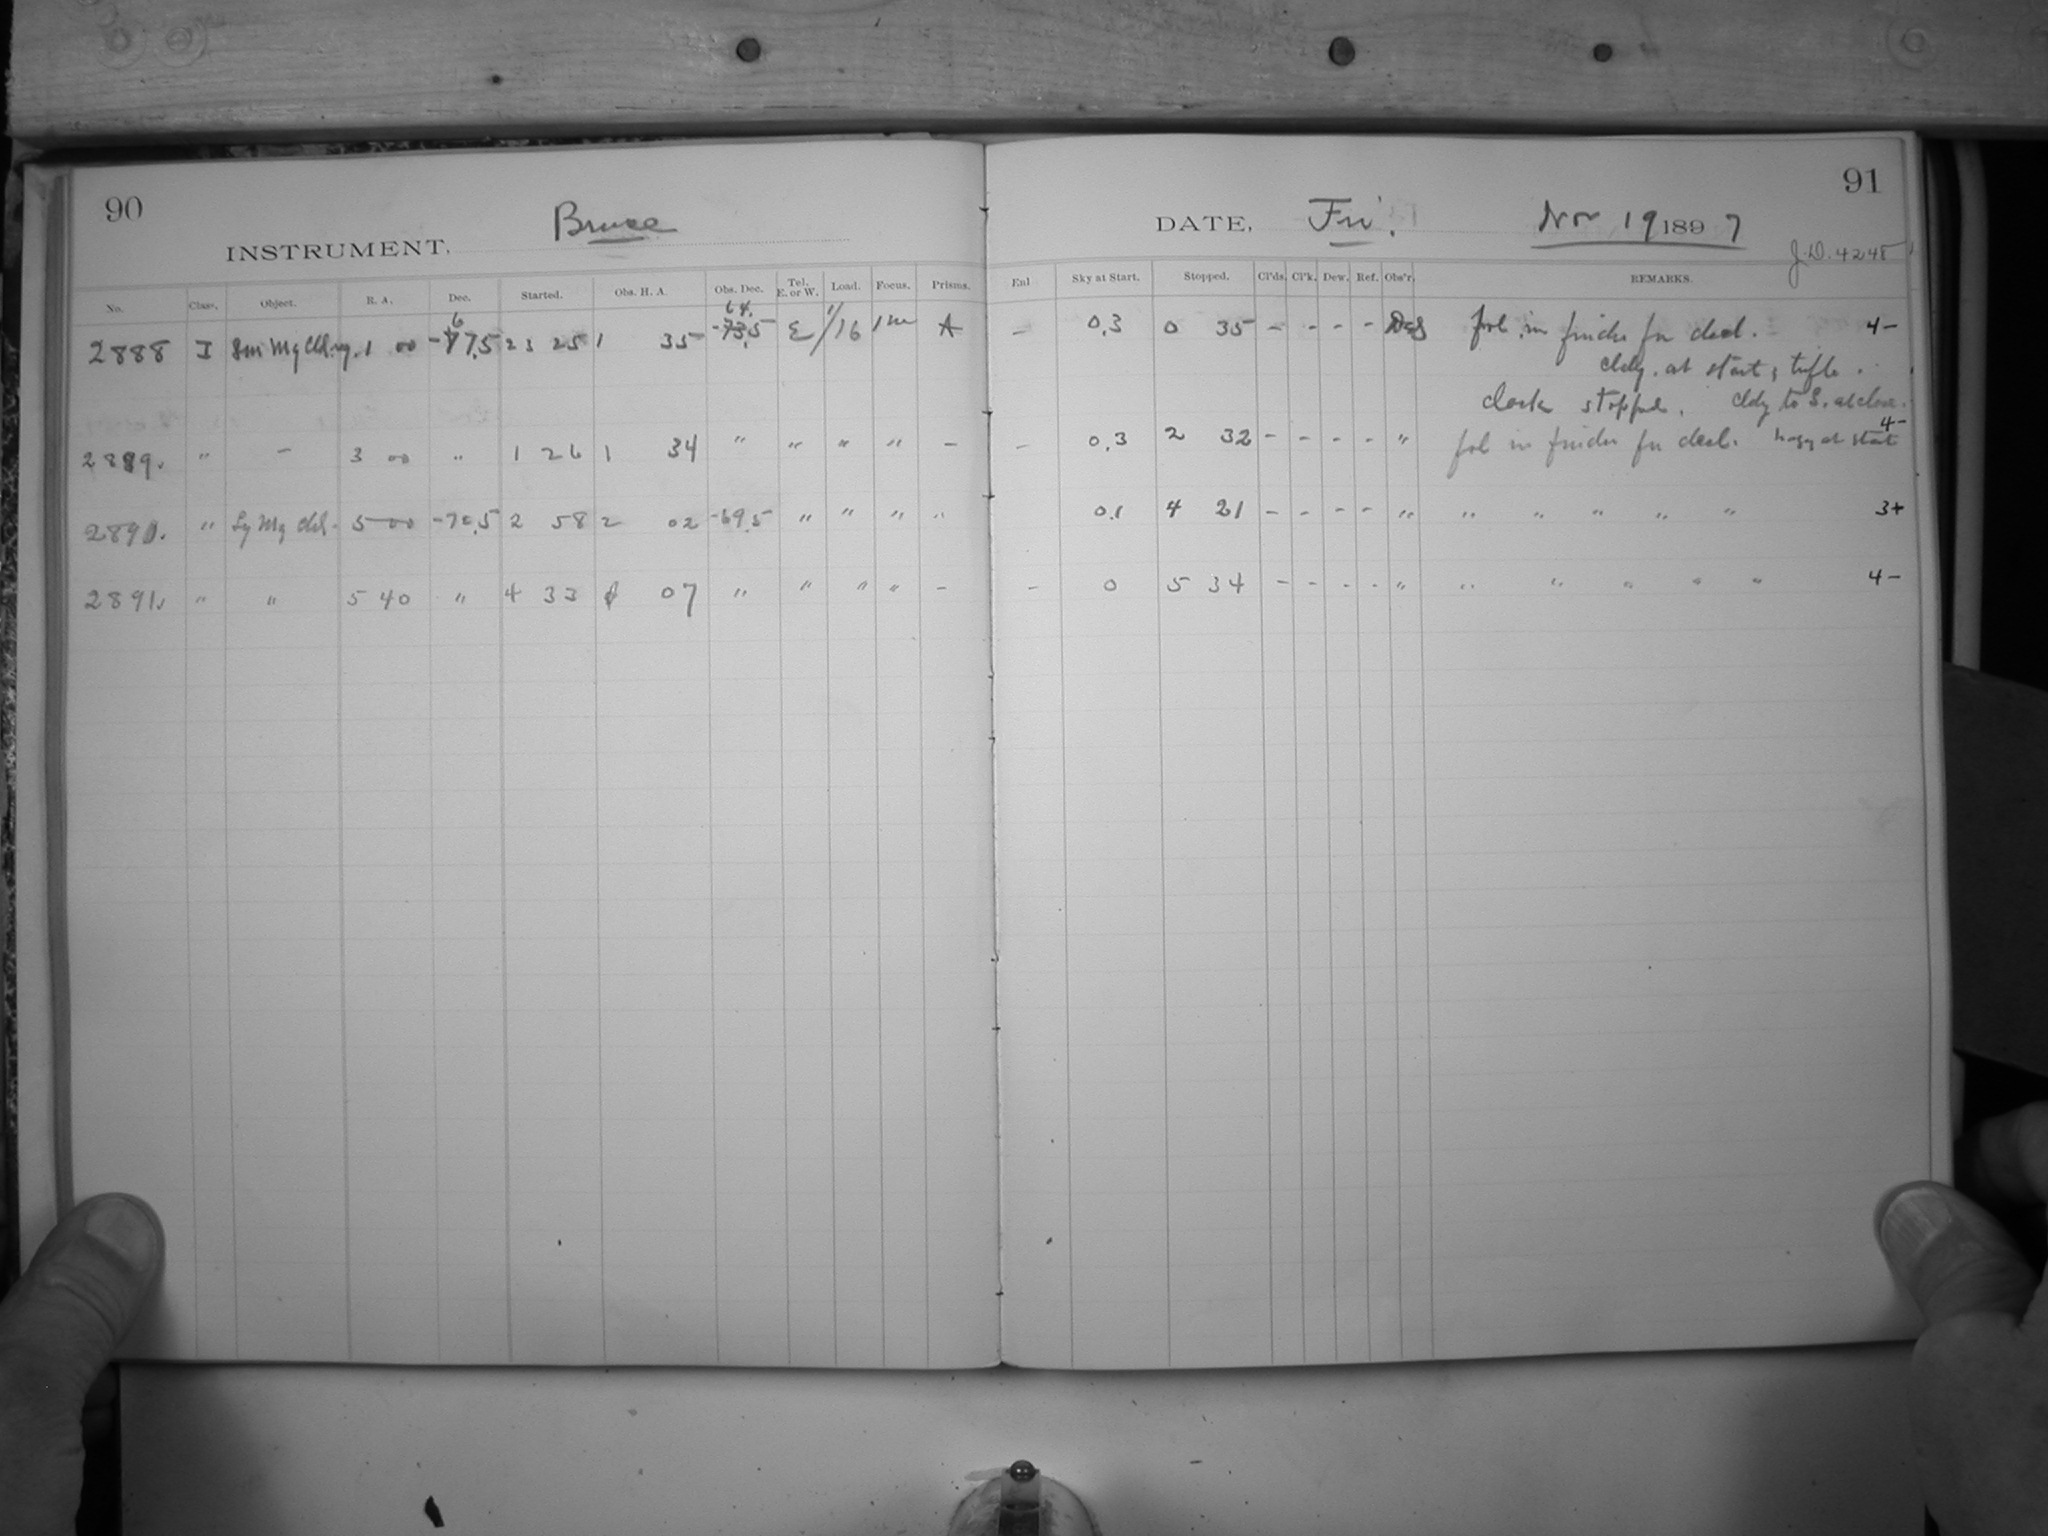 90
INSTRUMENT, Bruce
No. Class. Object. R. A. Dec. Started. Obs. H. A. Obs. Dec. Tel. E. or W. Load. Focus. Prisms.
2888 I Sm Mg Cld. 1 00 -67.5 23 25 1 35 -73.5 64. E 1/16 1m A
2889. " - 3 00 " 1 26 1 34 " " " " -
2890. " Lg Mg Cld. 5 00 -70.5 2 58 2 02 -69.5 " " " "
2891. " " 5 40 " 4 33 07 " " " " -
91
DATE, Fri. Nov 19 1897
J.D. 4248
Enl Sky at Start. Stopped. Cl'ds. Cl'k. Dew. Ref. Obs'r. REMARKS.
- 0.3 0 35 - - - - fol. in finder for decl. 4-
cldy. at start &
clock stopped. cldy to S. at close.
- 0.3 2 32 - - - - " fol in finder for decl. hazy at start 4-
0.1 4 21 - - - - " " " " " " 3+
- 0 5 34 - - - - " " " " " " 4-